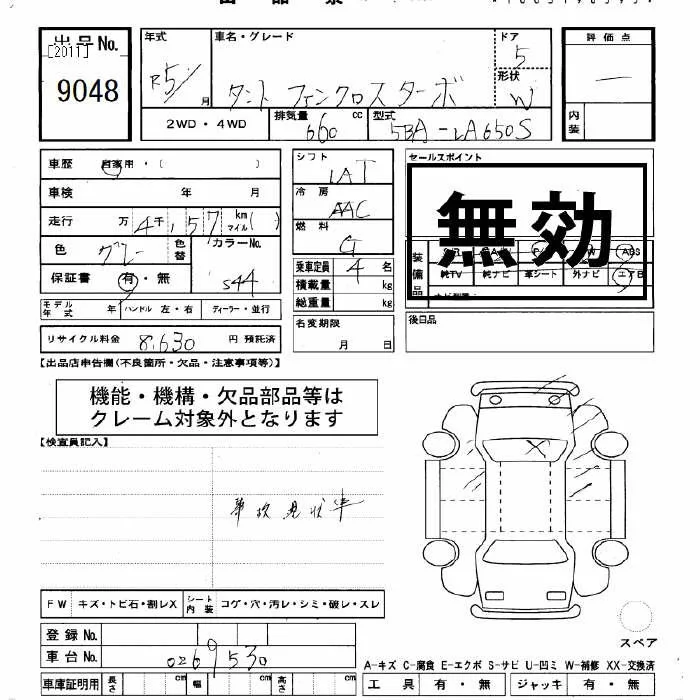 出品票
出品No.
[2011]
9048
年式
R5/
月
車名・グレード
タント ファンクロスターボ
ドア
5
形状
W
評価点
—
内装
2WD・4WD
排気量
660
cc
型式
5BA-LA650S
車歴
自家用・( )
車検 年 月
走行 万 4千,157 km マイル( )
色 グレー
色替
カラーNo.
S44
保証書 有・無
モデル年式 年
ハンドル 左・右
ディーラー・並行
リサイクル料金 8,630 円 預託済
シフト
IAT
冷房
AAC
燃料
G
乗車定員 4 名
積載量 kg
総重量 kg
名変期限
月 日
セールスポイント
無効
装備品
ABS
純TV 純ナビ 革シート 外ナビ エアB
後日品
【出品店申告欄(不良箇所・欠品・注意事項等)】
機能・機構・欠品部品等は
クレーム対象外となります
【検査員記入】
事故現状車
FW キズ・トビ石・割レX
シート内装 コゲ・穴・汚レ・シミ・破レ・スレ
登録No.
車台No. 0269530
車庫証明用 長さ cm 幅 cm 高さ cm
スペア
A-キズ C-腐食 E-エクボ S-サビ U-凹ミ W-補修 XX-交換済
工具 有・無 ジャッキ 有・無
X